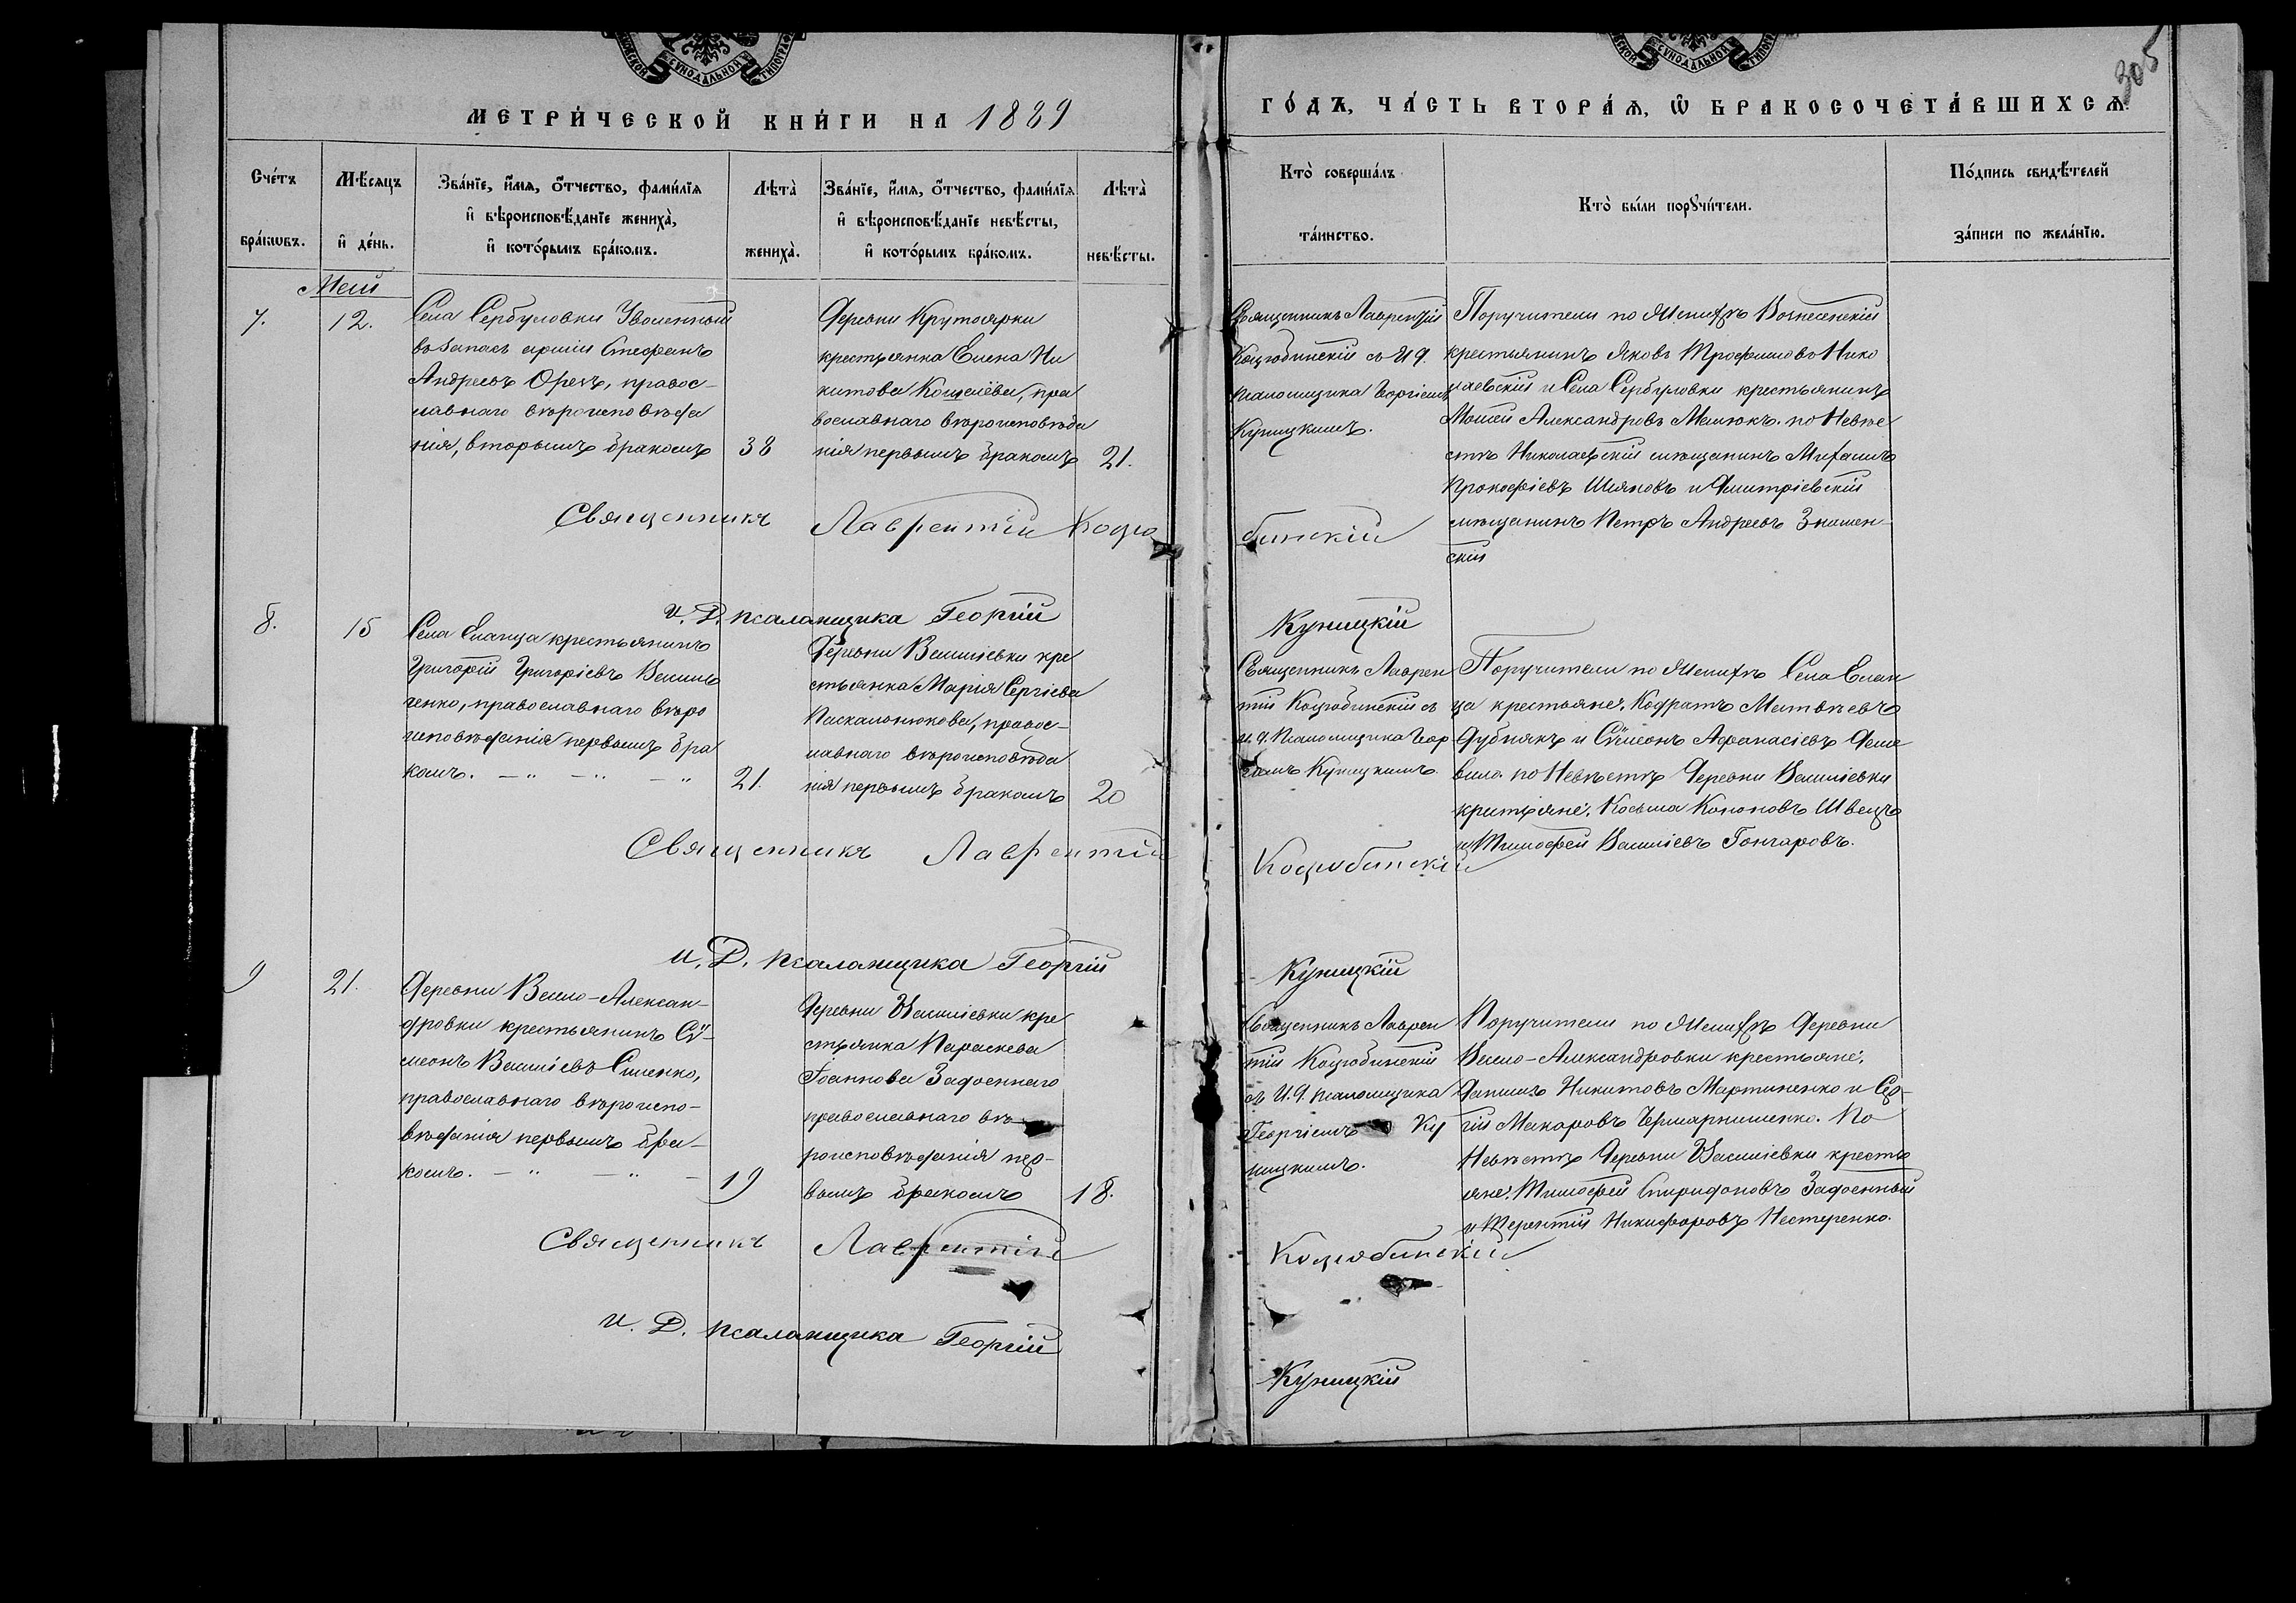 305
МЕТРИ́ЧЕСКОЙ КНИ́ГИ НА 1889
ГО́ДЪ, ЧА́СТЬ ВТОРА́Я, Ѡ БРАКОСОЧЕТА́ВШИХСЯ.
Сче́тъ бра́кѡвъ.
Мѣ́сяцъ и де́нь.
Зва́нїе, и́мя, о́тчество, фами́лїя
и вѣроисповѣ́данїе жениха̀,
и кото́рымъ бра́комъ.
Лѣта̀ жениха̀.
Зва́нїе, и́мя, о́тчество, фами́лїя
и вѣроисповѣ́данїе невѣ́сты,
и кото́рымъ бра́комъ.
Лѣта̀ невѣ́сты.
Кто̀ соверша́лъ та́инство.
Кто̀ бы́ли порꙋчи́тели.
По́дпись свидѣ́телей
за́писи по жела́нїю.
Май
7.
12.
Села Сербуловки Уволенный
въ запасъ арміи Стефанъ
Андреевъ Орелъ, правос-
лавнаго вѣроисповѣда
нія, вторымъ бракомъ
38
Деревни Крутоярки
крестьянка Елена Ни
китова Кощеіева, пра
вославнаго вѣроисповѣда
нія первымъ бракомъ
21.
Священникъ Лаврентій
Коцюбинскій съ И. д.
псаломщика Георгіемъ
Куницкимъ.
Поручители по Женихѣ Вознесенскій
крестьянинъ Яковъ Трофимовъ Нико
лаевскій и Села Сербуловки крестьянинъ
Моисей Александровъ Мелюкъ. по Невѣ
стѣ Николаевскій мѣщанинъ Михаилъ
Прокофіевъ Шляховъ и Дмитріевскій
мѣщанинъ Петръ Андреевъ Знамен-
скій
Священникъ Лаврентій Коцю
бинскій
и. Д. псаломщика Георгій
Куницкій
8.
15
Села Еланца крестьянинъ
Григорій Григоріевъ Васил
ченко, православнаго вѣро
исповѣданія первымъ бра
комъ. — " — " — "
21.
Деревни Василіевки кре
стьянка Марія Сергіева
Паскалонюкова, правос-
лавнаго вѣроисповѣда
нія первымъ бракомъ
20
Священникъ Лаврен
тій Коцюбинскій съ
и. д. псаломщика Геор
гіемъ Куницкимъ.
Поручители по Женихѣ Села Елан
ца крестьяне: Кодратъ Матвѣевъ
Дубнякъ и Сѵмеонъ Афанасіевъ
по Невѣстѣ Деревни Василіевки
крестьяне: Косьма Кононовъ Швецъ
и Тимофей Василіевъ Гончаровъ.
Священникъ Лаврентій
Коцюбинскій
и. Д. псаломщика Георгій
Куницкій
9
21.
Деревни Весело-Алексан-
дровки крестьянинъ Сѵ-
меонъ Василіевъ Сименко,
православнаго вѣроиспо-
вѣданія первымъ бра-
комъ. — " — " —
19
Деревни Василіевки кре
стьянка Параскева
Іоаннова Задоеннаго
православнаго вѣ
роисповѣданія пер-
вымъ бракомъ
18.
Священникъ Лаврен
тій Коцюбинскій
съ И. д. псаломщика
Георгіемъ Ку
ницкимъ.
Поручители по Женихѣ Деревни
Весело-Александровки крестьяне:
Даніилъ Никитовъ Мартиненко и Сер-
гій Макаровъ. По
Невѣстѣ Деревни Василіевки кресть
яне: Тимофей Спиридоновъ Задоенный
и Терентій Никифоровъ Нестеренко.
Священникъ Лаврентій
Коцюбинскій
и. Д. псаломщика Георгій
Куницкій